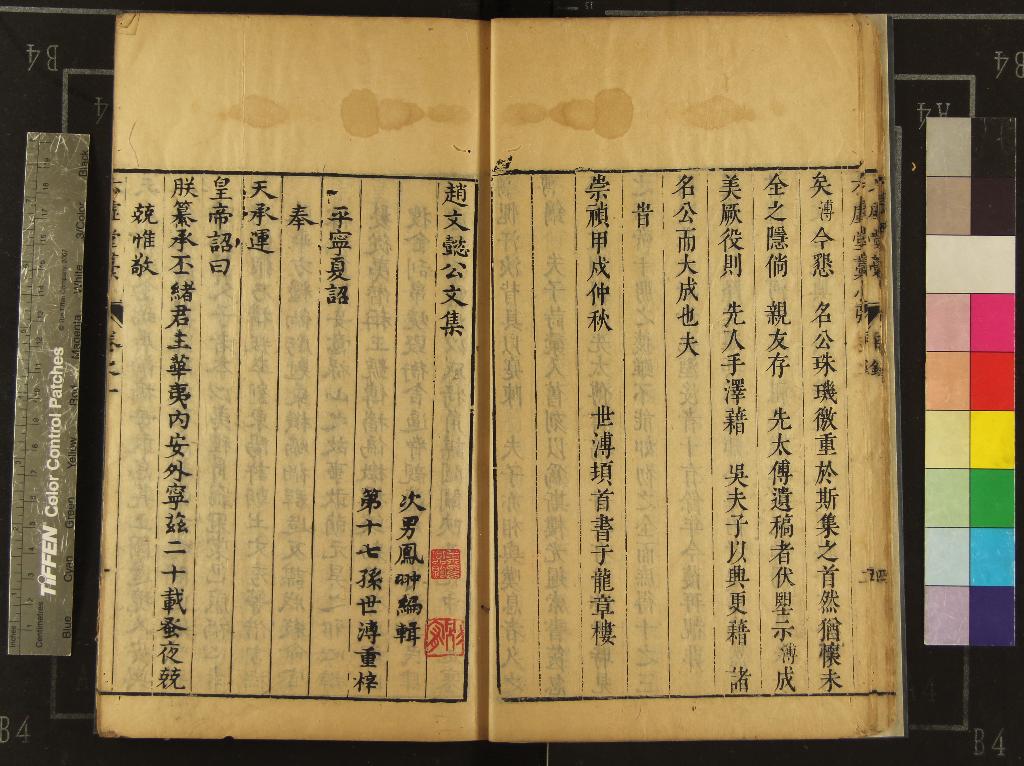 矣溥今懇 名公珠璣徽重於斯集之首然猶懷未
全之隱倘 親友存 先太傅遺稿者伏望示溥成
美厥役則 先人手澤藉 吳夫子以興更藉 諸
名公而大成也夫
旹
崇禎甲戍仲秋 世溥頊首書于龍章樓
趙文懿公文集
次男鳳翀編輯
第十七孫世溥重梓
平寧夏詔
奉
天承運
皇帝詔曰
朕纂承丕緒君主華夷內安外寧玆二十載蚤夜兢
兢惟敬
TIFFEN Color Control Patches
Blue Cyan Green Yellow Red Magenta White 3/Color Black
Centimetres
B4
B4
B4
B4
A4